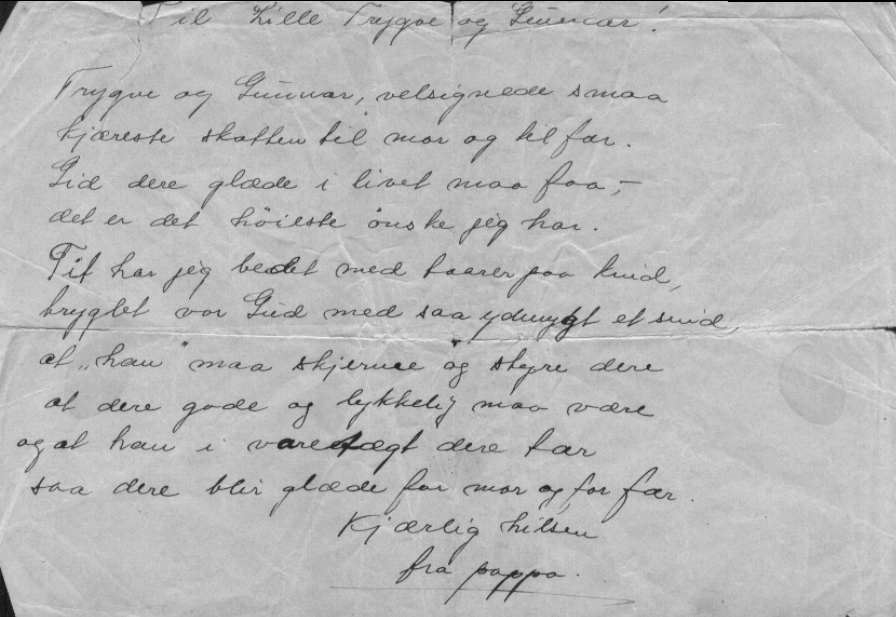 Til Lille Trygve og Gunnar!
Trygve og Gunnar, velsignede smaa
kjæreste skatten til mor og til far.
Gid dere glæde i livet maa faa,-
det er det høieste ønske jeg har.
Tit har jeg bedet med taarer paa kind,
tryglet vor Gud med saa ydmygt et sind,
at „han" maa skjerme og styre dere
at dere gode og lykkelig maa være
og at han i varetægt dere tar
saa dere blir glæde for mor og for far.
Kjærlig hilsen
fra pappa.